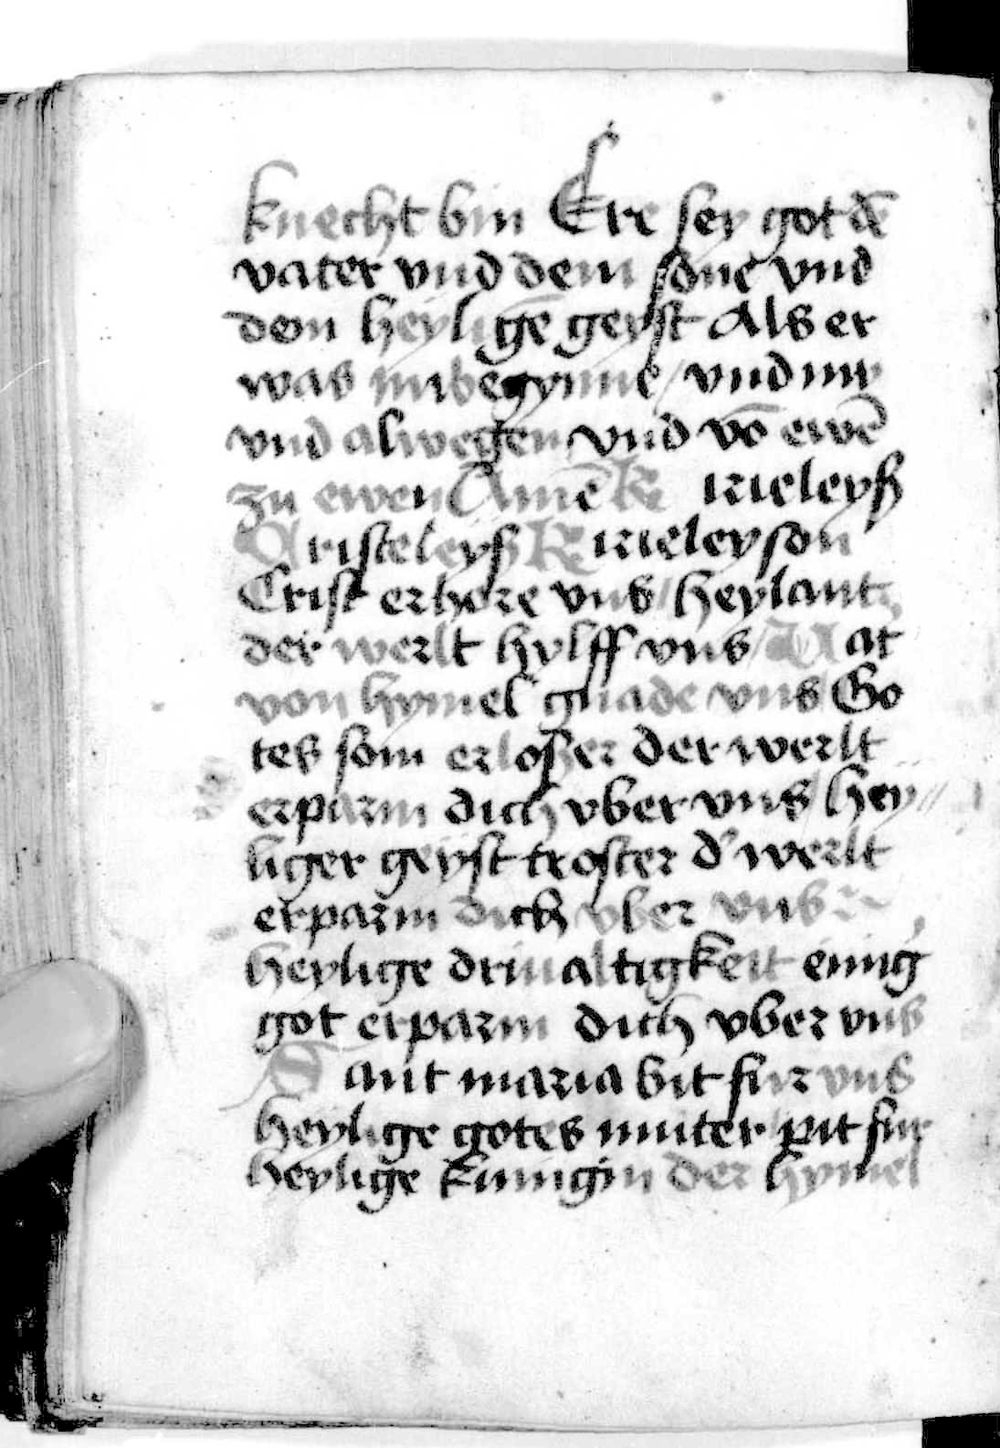 knecht bin Ere sey got dē
vater vnd dem sone vnd
dem heyligē geyst Als er
was im begynne / vnd nu
vnd alwegen vnd vō ewē
zu ewen Amē K irieleyß
Cristeleyß Kirieleyson
Crist erhore vns / heylant
der werlt hylff vns / Vat
von hymel gnade vns / Go
tes son erloßer der werlt
erparm dich vber vns / hey
liger geyst troster d' werlt
erparm dich vber vns
heylige driualtigkeit einig
got erparm dich vber vns
Sant maria bit fur vns
heylige gotes muter pit fur
heylige kunigin der hymel